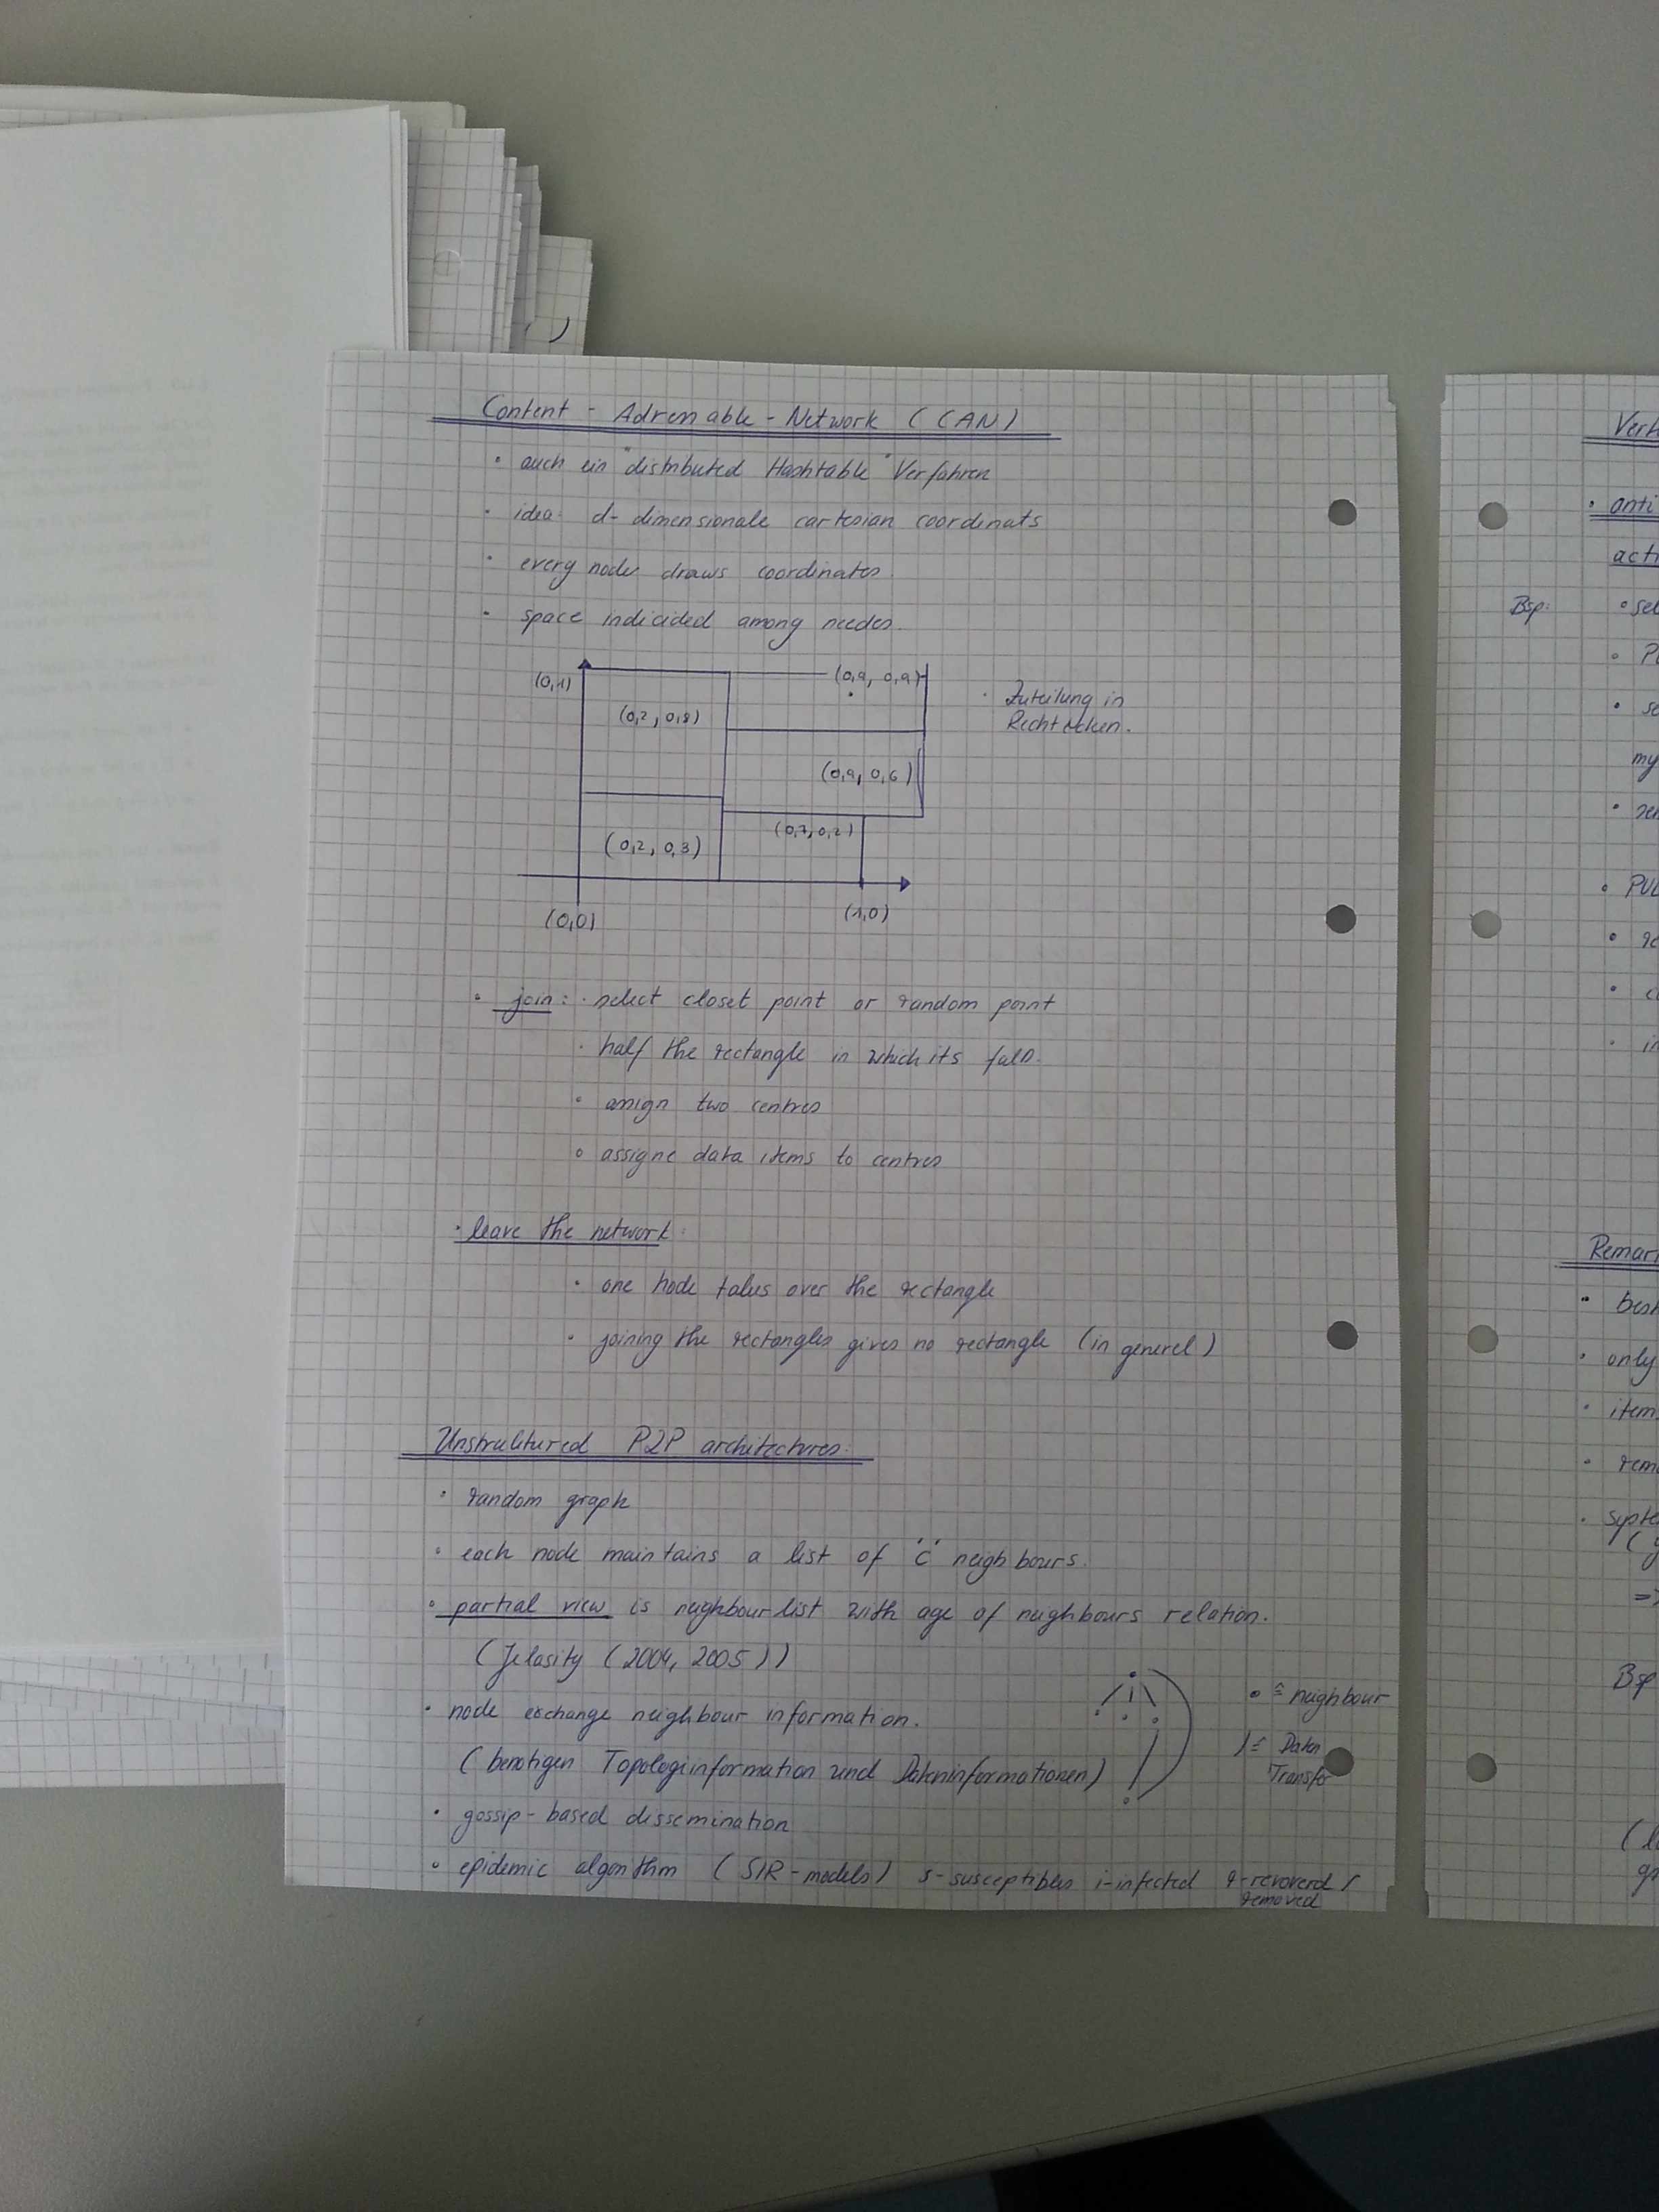 Content - Adrenable - Network (CAN)
• auch ein "distributed Hashtable" Verfahren
• idea: d-dimensionale cartesian coordinats
• every node draws coordinates.
• space indicided among nodes.
(0,1)
(0,9, 0,9)
(0,2, 0,8)
• Zuteilung in
Rechtecken.
(0,9, 0,6)
(0,7, 0,2)
(0,2, 0,3)
(0,0)
(1,0)
• join: • select closet point or random point
• half the rectangle in which its falls.
• assign two centres
• assigne data items to centres
• leave the network:
• one node takes over the rectangle
• joining the rectangles gives no rectangle (in generel)
Unstructured P2P architectures:
• random graph
• each node maintains a list of 'c' neighbours.
• partial view is neighbourlist with age of neighbours relation.
(Jelasity (2004, 2005))
• node exchange neighbour information.
• ≙ neighbour
(benötigen Topologieinformation und Dateninformationen)
) ≙ Daten
Transfe
• gossip-based dissemination
• epidemic algorithm (SIR-models) s-susceptibles i-infected r-revoverd /
removed
• anti
acti
Bsp:
my
• PUL
• in
Remar
• only
• item
• rem
Bsp